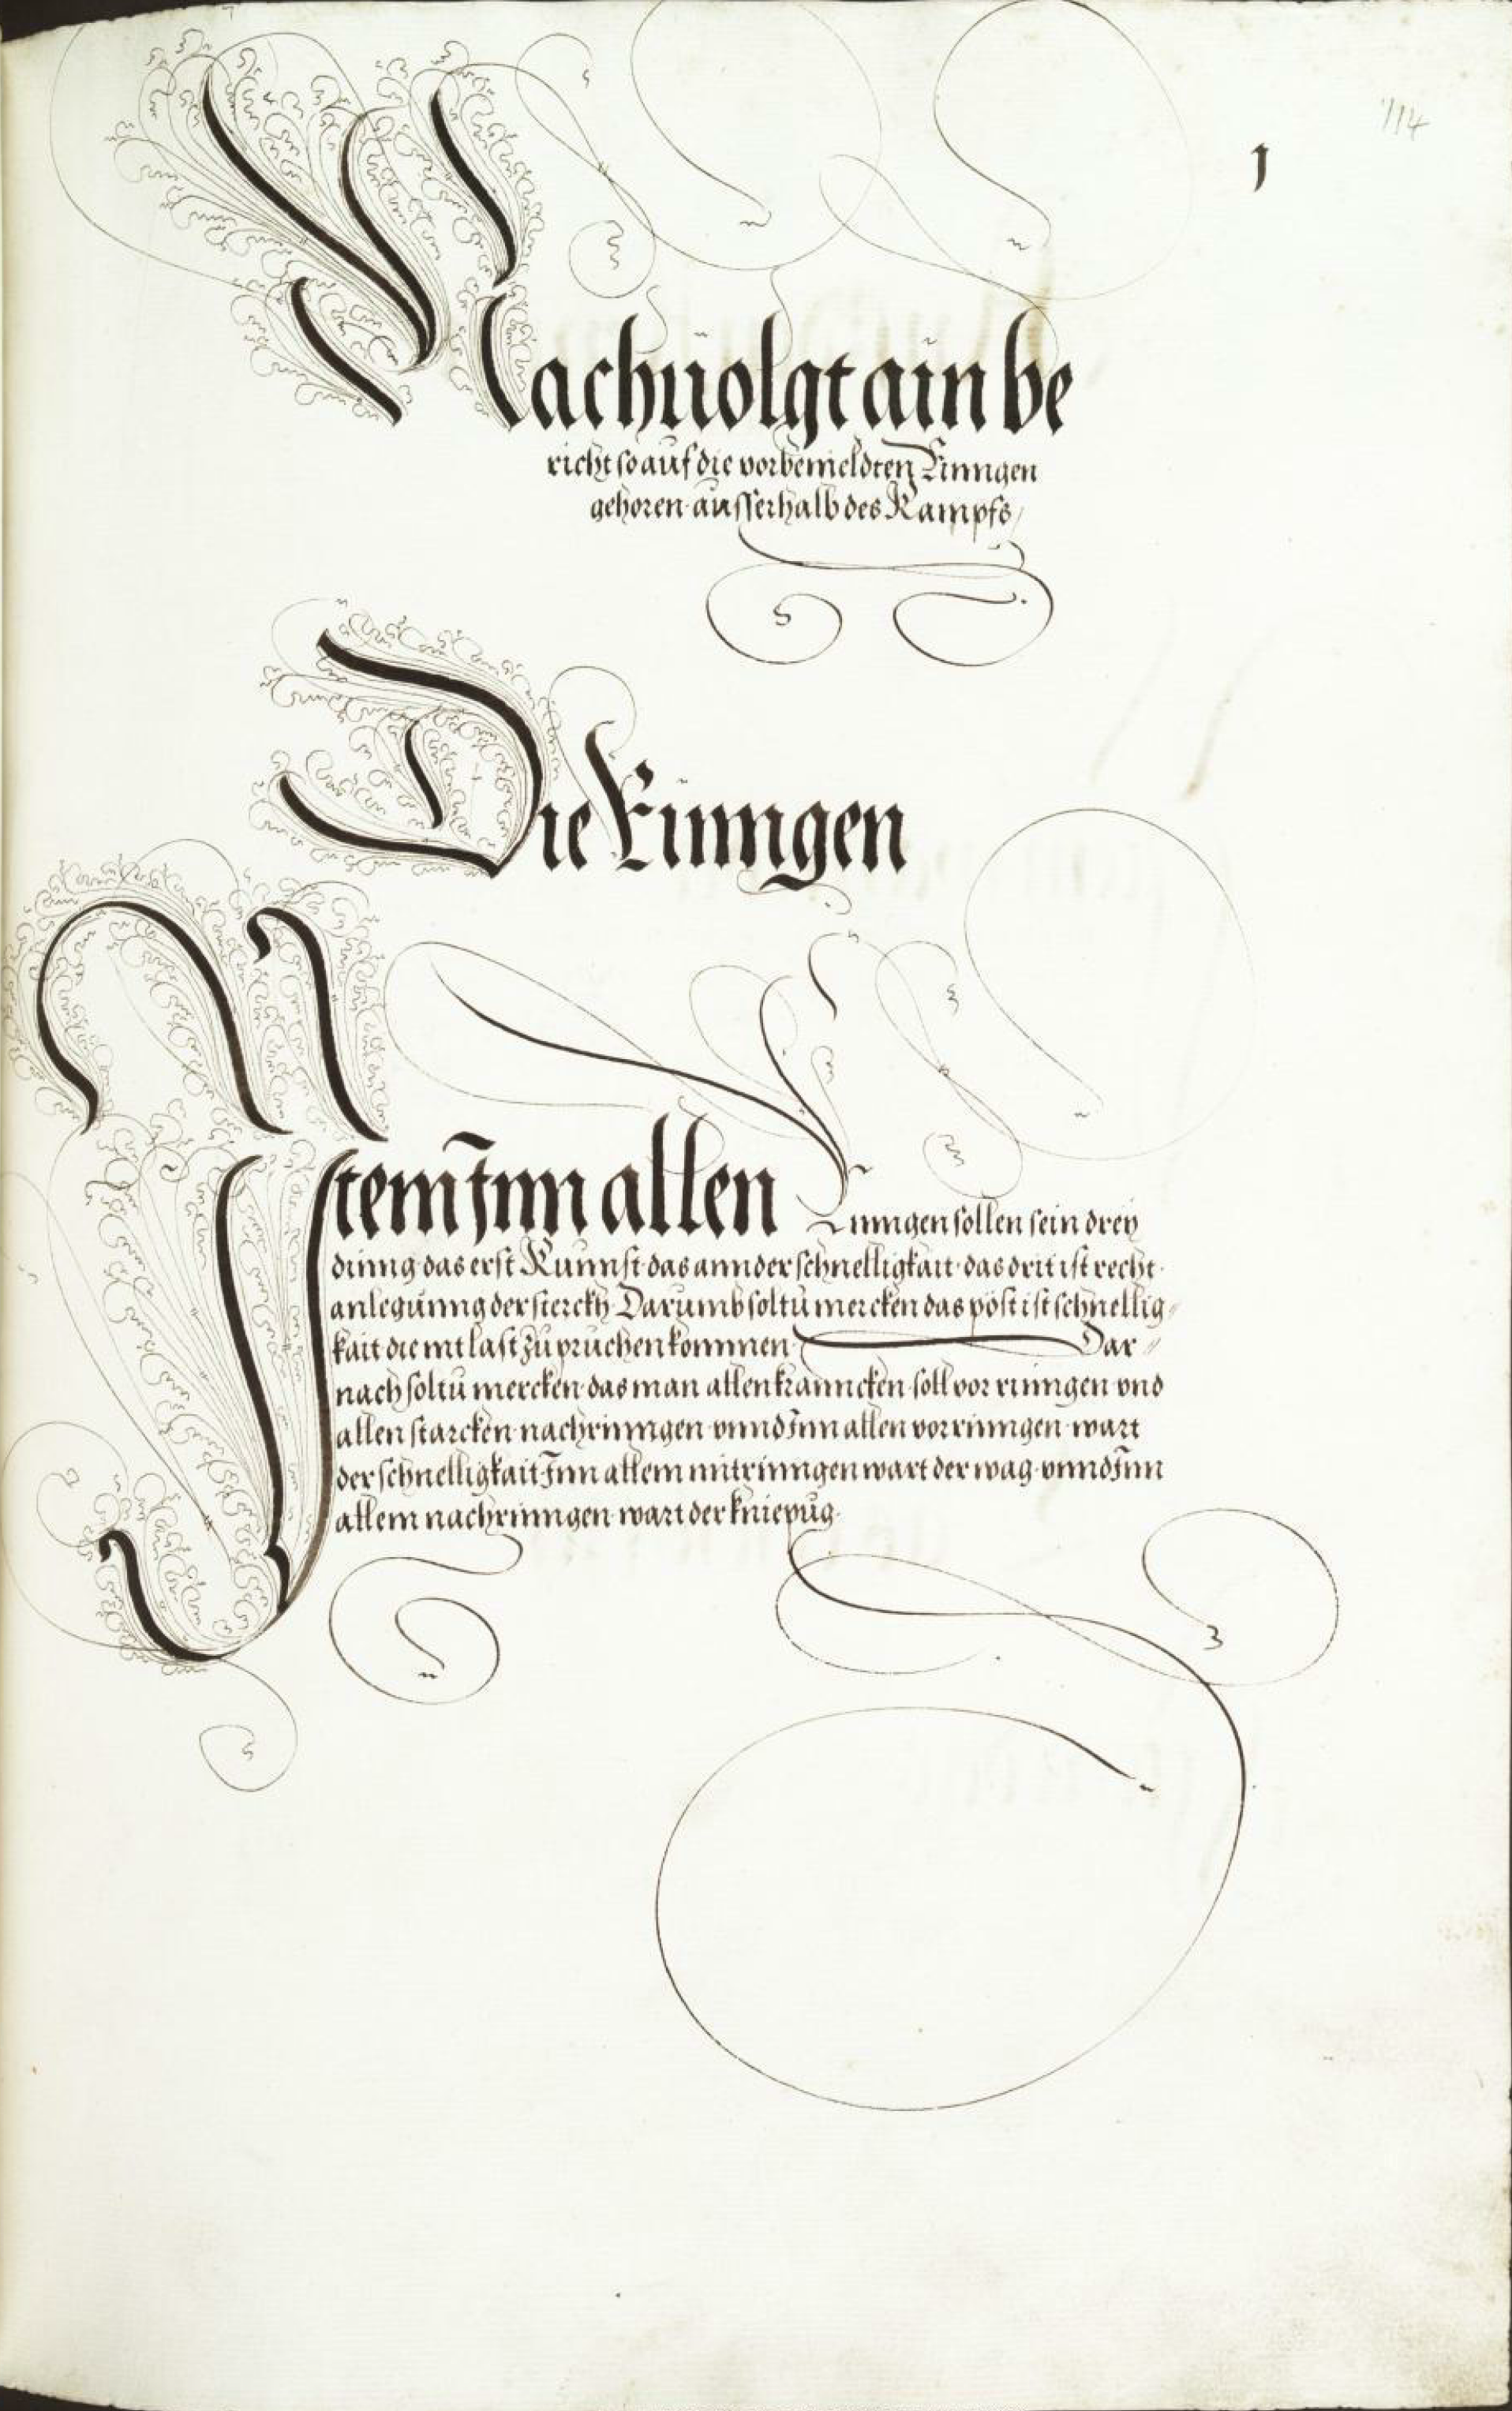 114
1
Nachuolgt ain be
richt so auf die vorbemeldten Rinngen
gehoren ausserhalb des Kampfs
Die Rinngen
Item Inn allen Rinngen sollen sein drey
dinng das erst Kunnst das annder schnelligkait das drit ist recht
anlegunng der sterckh Darumb soltu mercken das pöst ist schnellig
kait die nit last zu pruchen kommen Dar
nach soltu mercken das man allen kranncken soll vor rinngen vnd
allen starcken nachrinngen vnnd Inn allen vorrinngen wart
der schnelligkait Inn allem mitrinngen wart der wag vnnd Inn
allem nachrinngen wart der kniepüg